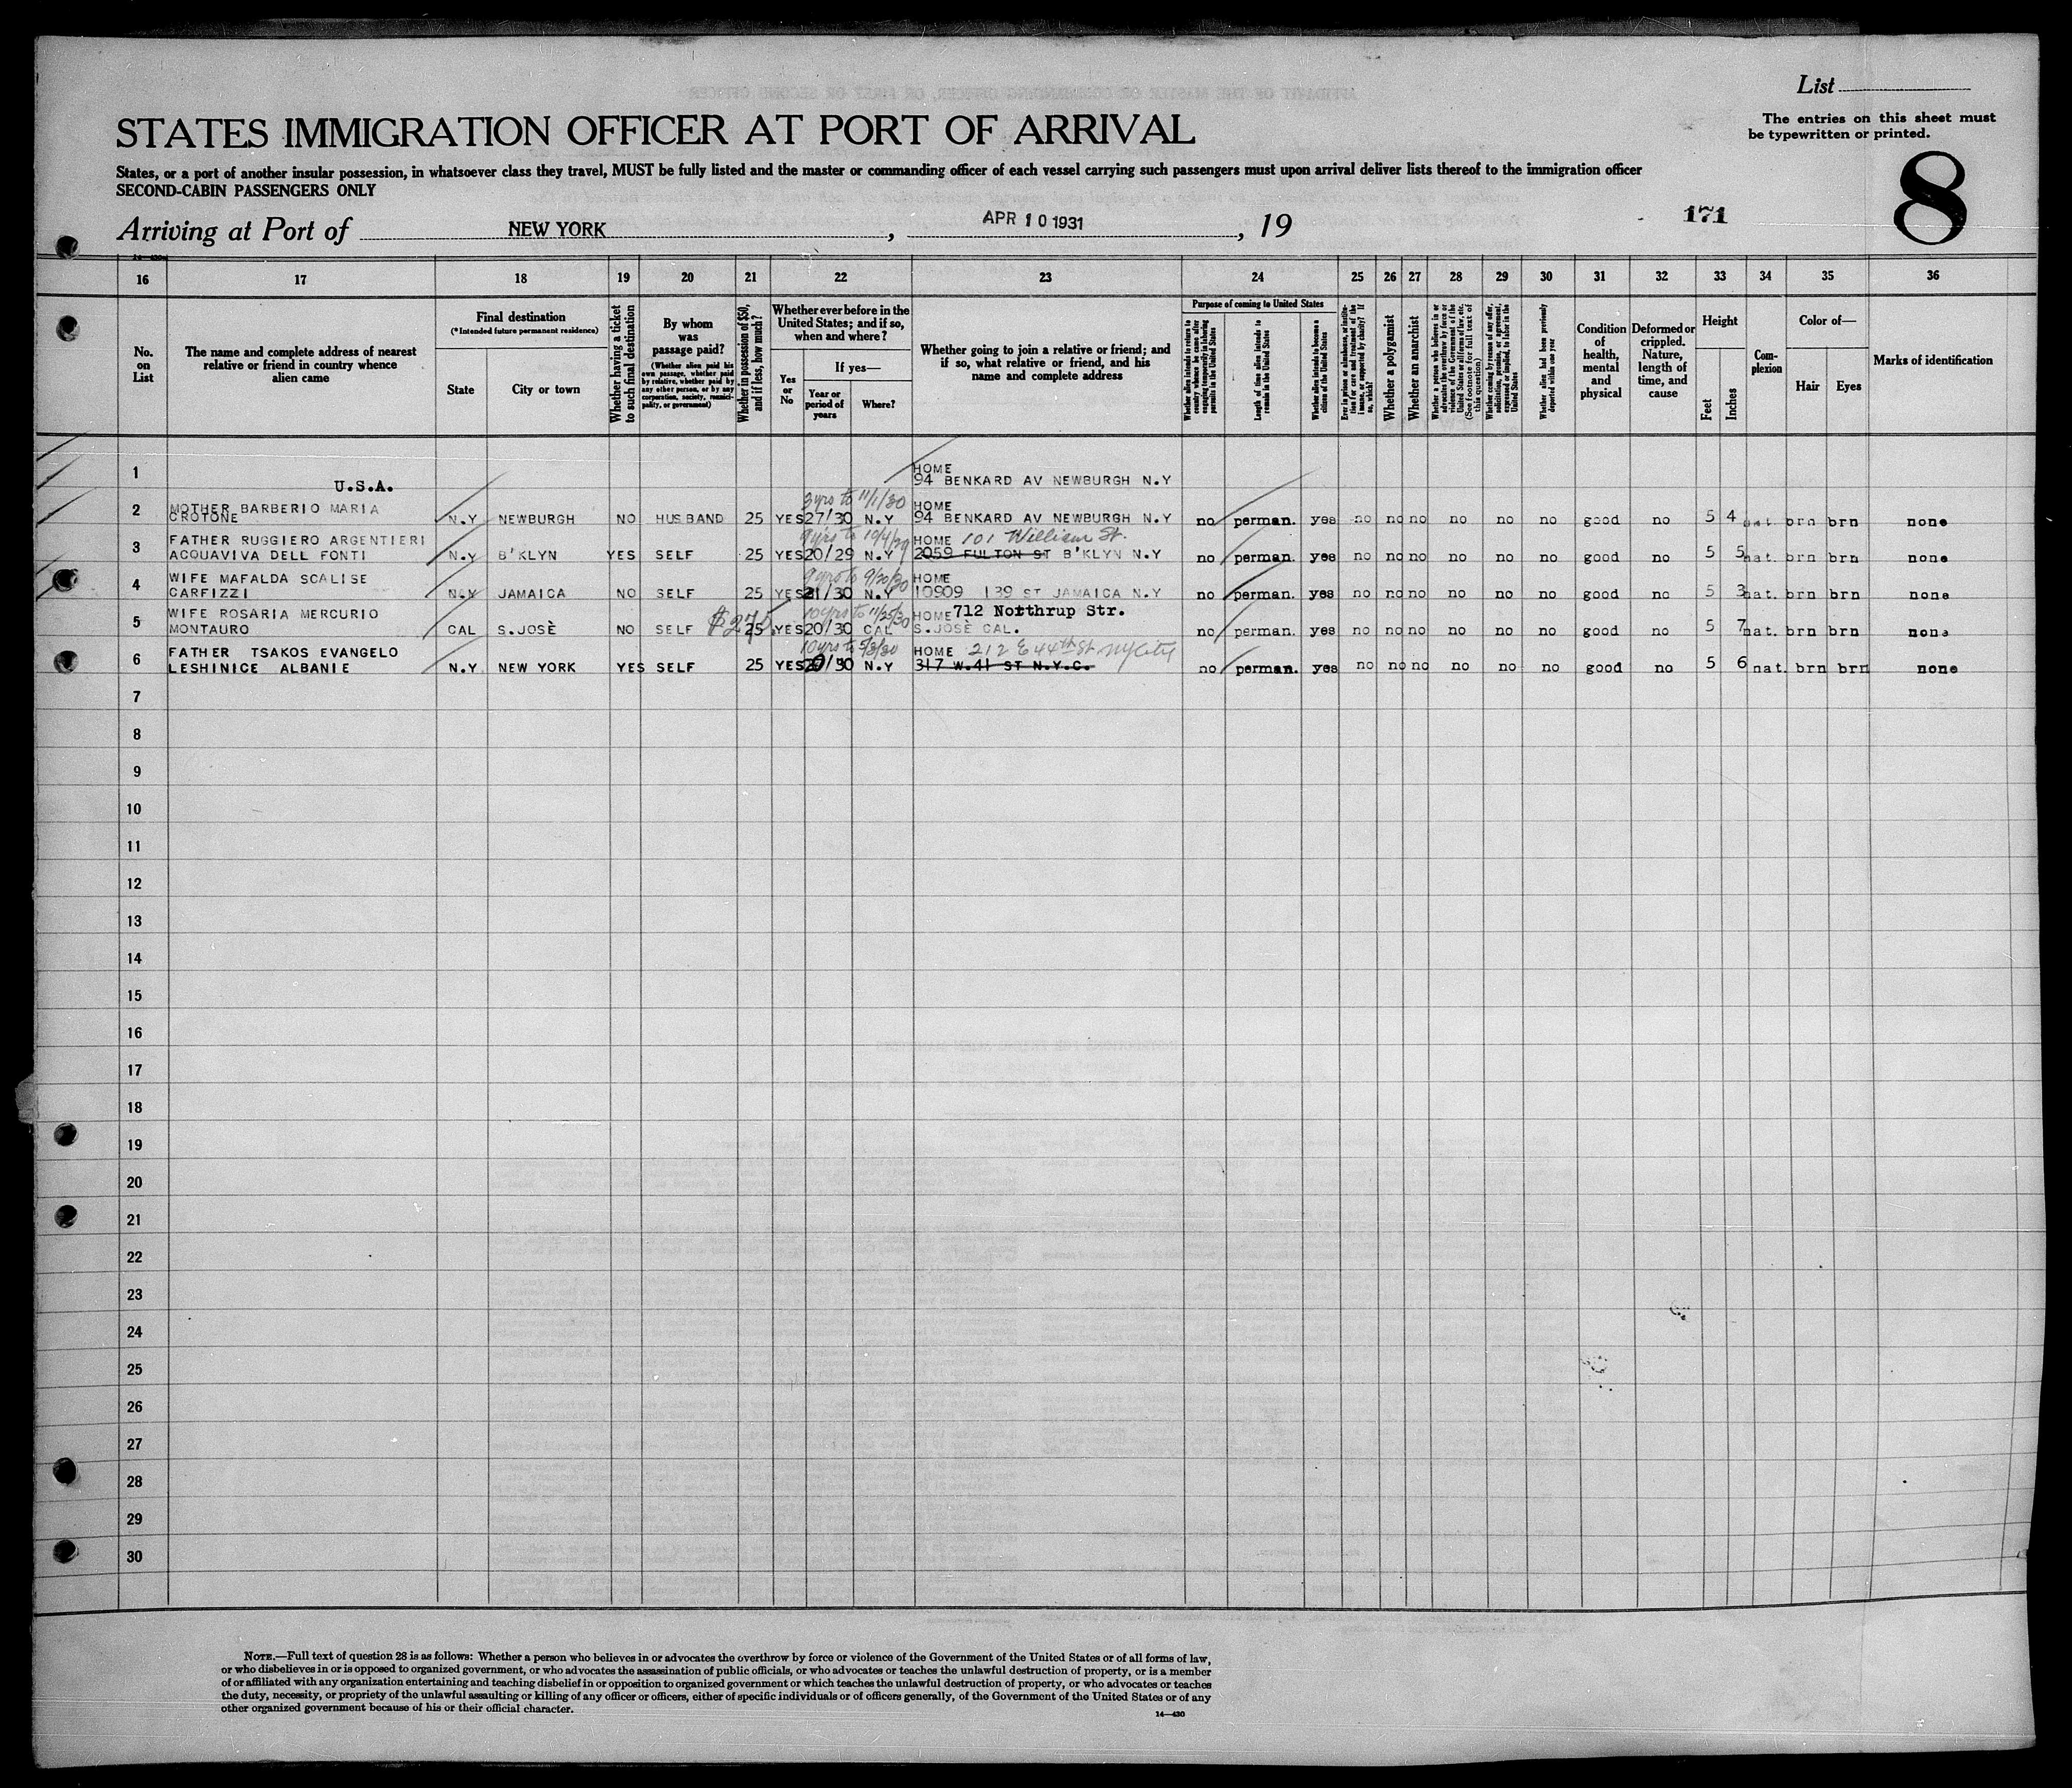 List
The entries on this sheet must
be typewritten or printed.
STATES IMMIGRATION OFFICER AT PORT OF ARRIVAL
States, or a port of another insular possession, in whatsoever class they travel, MUST be fully listed and the master or commanding officer of each vessel carrying such passengers must upon arrival deliver lists thereof to the immigration officer
SECOND-CABIN PASSENGERS ONLY
8
171
Arriving at Port of NEW YORK, APR 10 1931, 19
16 17 18 19 20 21 22 23 24 25 26 27 28 29 30 31 32 33 34 35 36
No. on List
The name and complete address of nearest relative or friend in country whence alien came
Final destination
(*Intended future permanent residence)
State
City or town
Whether having a ticket to such final destination
By whom was passage paid?
(Whether alien paid his own passage, whether paid by relative, whether paid by any other person, or by any corporation, society, municipality, or government)
Whether in possession of $50, and if less, how much?
Whether ever before in the United States; and if so, when and where?
Yes or No
If yes—
Year or period of years
Where?
Whether going to join a relative or friend; and if so, what relative or friend, and his name and complete address
Purpose of coming to United States
Whether alien intends to return to country whence he came after engaging temporarily in laboring pursuits in the United States
Length of time alien intends to remain in the United States
Whether alien intends to become a citizen of the United States
Ever in prison or almshouse, or institution for care and treatment of the insane, or supported by charity? If so, which?
Whether a polygamist
Whether an anarchist
Whether a person who believes in or advocates the overthrow by force or violence of the Government of the United States or all forms of law, etc. (See footnote for full text of this question)
Whether coming by reason of any offer, solicitation, promise, or agreement, expressed or implied, to labor in the United States
Whether alien had been previously deported within one year
Condition of health, mental and physical
Deformed or crippled. Nature, length of time, and cause
Height
Feet
Inches
Complexion
Color of—
Hair
Eyes
Marks of identification
1 U.S.A. HOME
94 BENKARD AV NEWBURGH N.Y
3yrs to 11/1/30
2 MOTHER BARBERIO MARIA HOME
CROTONE N.Y NEWBURGH NO HUSBAND 25 YES 27/30 N.Y 94 BENKARD AV NEWBURGH N.Y no perman. yes no no no no no no good no 5 4 nat. brn brn none
9yrs to 10/4/29
3 FATHER RUGGIERO ARGENTIERI HOME 101 William St.
ACQUAVIVA DELL FONTI N.Y B'KLYN YES SELF 25 YES 20/29 N.Y 2059 FULTON ST B'KLYN N.Y no perman. yes no no no no no no good no 5 5 nat. brn brn none
9yrs to 9/20/30
4 WIFE MAFALDA SCALISE HOME
CARFIZZI N.Y JAMAICA NO SELF 25 YES 21/30 N.Y 10909 139 ST JAMAICA N.Y no perman. yes no no no no no no good no 5 3 nat. brn brn none
10yrs to 11/25/30
5 WIFE ROSARIA MERCURIO HOME 712 Northrup Str.
MONTAURO CAL S.JOSÈ NO SELF $275 25 YES 20/30 CAL S.JOSÈ CAL. no perman. yes no no no no no no good no 5 7 nat. brn brn none
10yrs to 5/3/30
6 FATHER TSAKOS EVANGELO HOME 212 E 44th St NY City
LESHINICE ALBANIE N.Y NEW YORK YES SELF 25 YES 20/30 N.Y 317 W.41 ST N.Y.C. no perman. yes no no no no no no good no 5 6 nat. brn brn none
7
8
9
10
11
12
13
14
15
16
17
18
19
20
21
22
23
24
25
26
27
28
29
30
NOTE.—Full text of question 28 is as follows: Whether a person who believes in or advocates the overthrow by force or violence of the Government of the United States or of all forms of law,
or who disbelieves in or is opposed to organized government, or who advocates the assassination of public officials, or who advocates or teaches the unlawful destruction of property, or is a member
of or affiliated with any organization entertaining and teaching disbelief in or opposition to organized government or which teaches the unlawful destruction of property, or who advocates or teaches
the duty, necessity, or propriety of the unlawful assaulting or killing of any officer or officers, either of specific individuals or of officers generally, of the Government of the United States or of any
other organized government because of his or their official character.
14—430